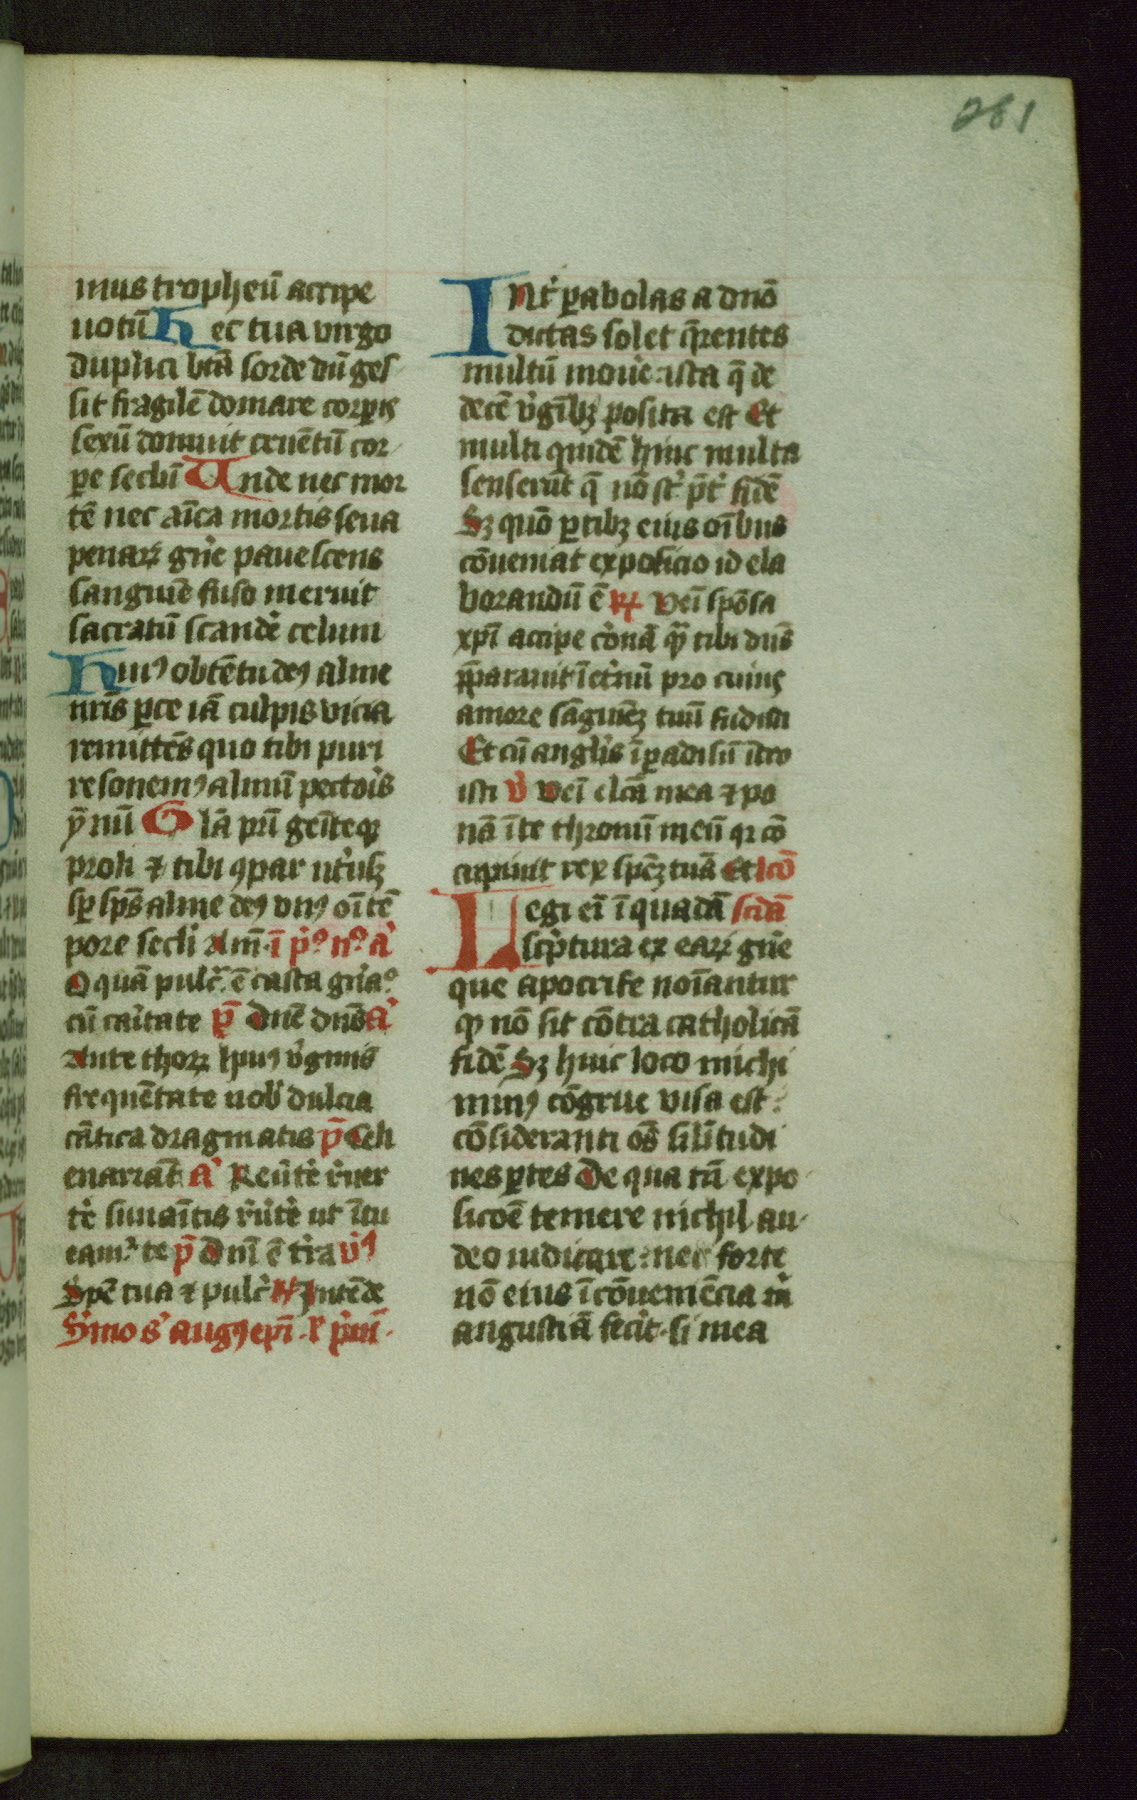 261
mus tropheū accipe
uotū Hec tua virgo
duplici btā sorde dū ges
sit fragilē domare corꝑis
sexū domuit cruētū cor
ꝑe seclū Unde nec mor
tē nec aīca mortis seua
penaꝝ gn̄e pauescens
sanguīe fuso meruit
sacratū scand̄e celum
Huiꝰ obtētu deꝰ alme
nr̄is ꝑce iā culpis vicia
remittēs quo tibi puri
resonemꝰ almū pectoīs
ẏmnū Glā pr̄i genīteqꝫ
proli ⁊ tibi ꝯpar utīusqꝫ
sꝑ sp̄s alme deꝰ vnꝰ oī tē
pore secli Am̄ ī p̄º nº a'
O quā pulc̄ ē casta gn̄aº
cū caītate p̄ Dn̄e dn̄s a'
Ante thoꝝ hꝰ v̄ginis
frequētate nob' dulcia
cātica dragmatis p̄ Celi
enarrāt a' Reūtē r̄uer
tē sunaītis r̄ūtē ut ītu
eamᵉ te p̄ Dn̄i ē tr̄a v̄ꝰ
Spē tua ⁊ pulc̄ Intēde
S̄mo s' augꝰ ep̄i .l' p̄m̄
Int̄ ꝑabolas a dn̄o
dictas solet q̄rentes
multū mouē ista q̄ de
decē v̄gībꝫ posita est Et
multi quidē hinc multa
senserūt q̄ nō st̄ p̄t fidē
Sꝫ quō ꝑtibꝫ eius oībus
cōueniat exposicio id ela
borandū ē Veī spōsa
xp̄i accipe cōnā qꝫ tibi dn̄s
p̄parauit īet̄nū pro cuiuꝰ
amore sāguīeꝫ tuū fudisti
Et cū anglīs ī ꝑadisū ītro
isti v̄ Veī elc̄a mea ⁊ po
nā ī te thronū meū qꝛ cō
cupiuit rex spēꝫ tuā Et lcō
Legi eī ī quadā scdā
sc̄ptura ex eaꝝ gn̄e
que apocrife noīantur
qꝫ nō sit cōtra catholicā
fidē Sꝫ huic loco michi
minꝰ cōgrue visa est
cōsideranti oēs silītudi
nes ꝑtes De qua tn̄ expo
sicōe temere nichil au
deo iudicare: ne forte
nō eius īcōueniēcia m̄
angustiā fec̄it si mea